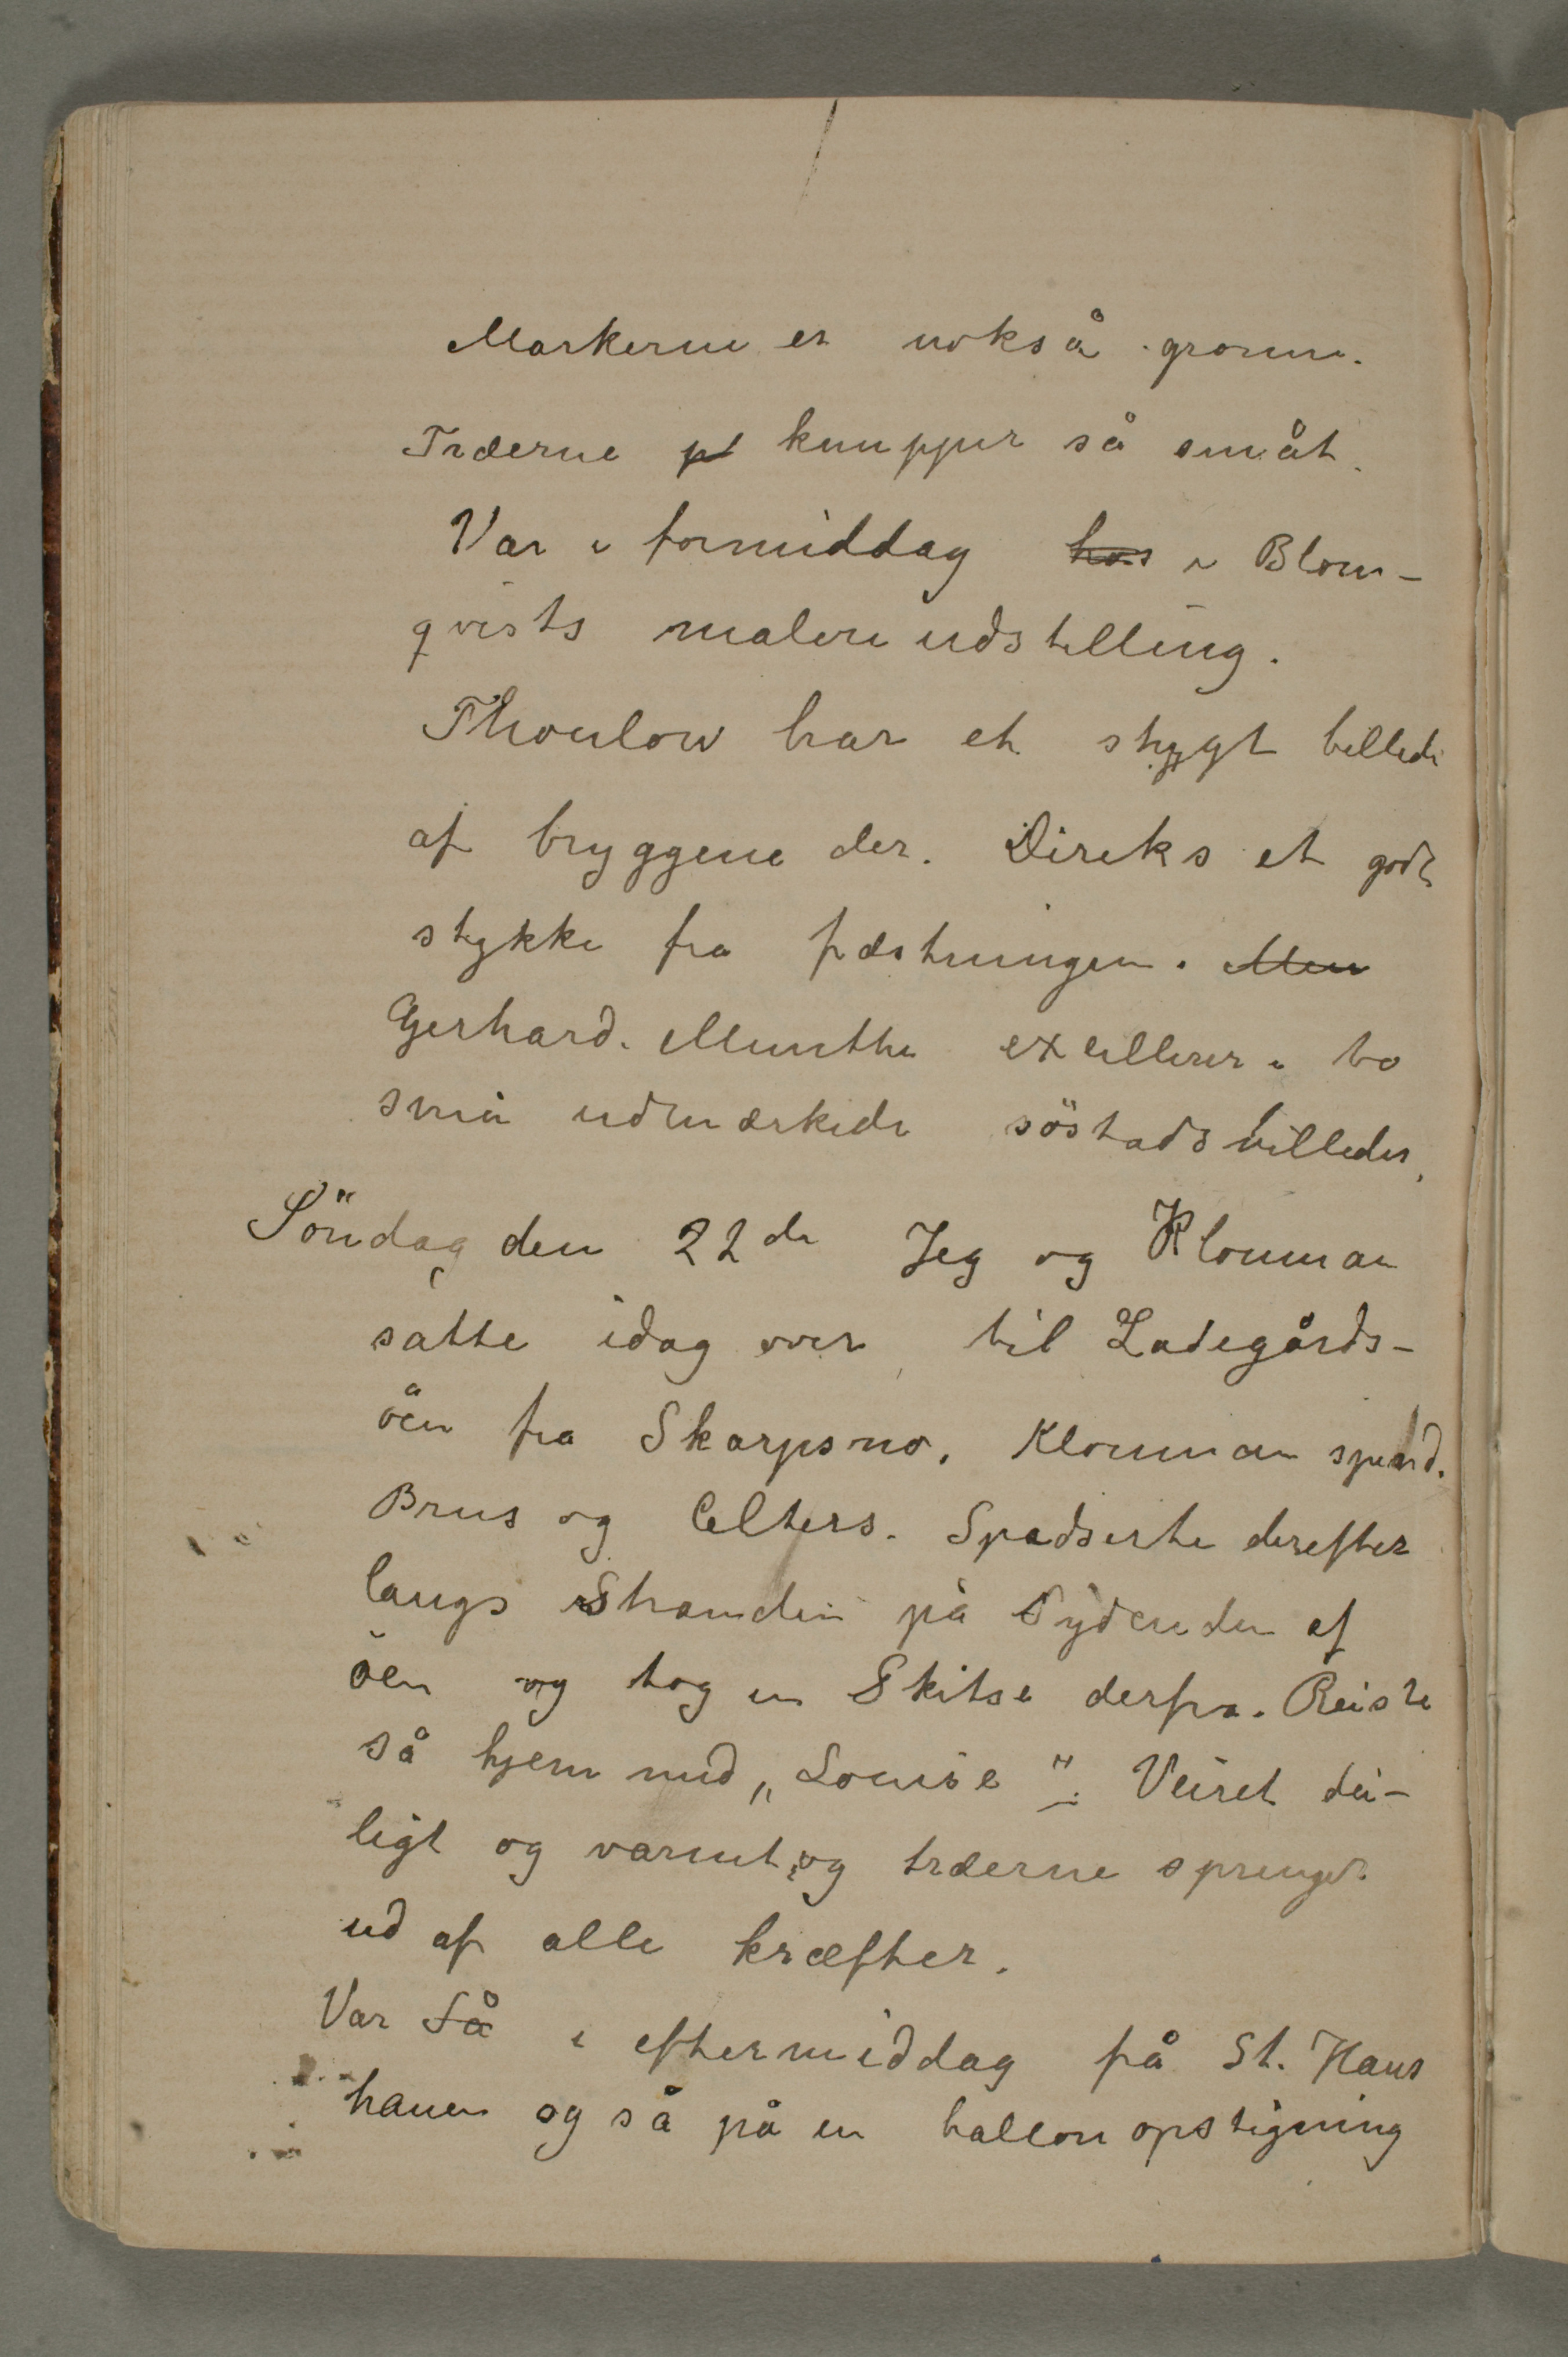 Markerne er nokså grønne.
Træerne knupper så småt.
Var i formiddag hos i Blom-
qvists maleriudstilling.
Thoulow har et stygt billede
af bryggene der. Direks et godt
stykke fra fæstningen. Men
Gerhard. Munthe exellerer i to
små udmærkede söstadsbilleder,
Söndag den 22de Jeg og Klouman
satte idag over til Ladegårds-
öen fra Skarpsno. Klouman spend.
Brus og Celters. Spadserte derefter
langs Stranden på Sydenden af
öen og tog en Skitse derfra. Reiste
så hjem med „Louise“. Veiret dei-
ligt og varmt, og træerne springer
ud af alle kræfter.
Var så i eftermiddag på St. Hans
hauen og så på en ballon opstigning